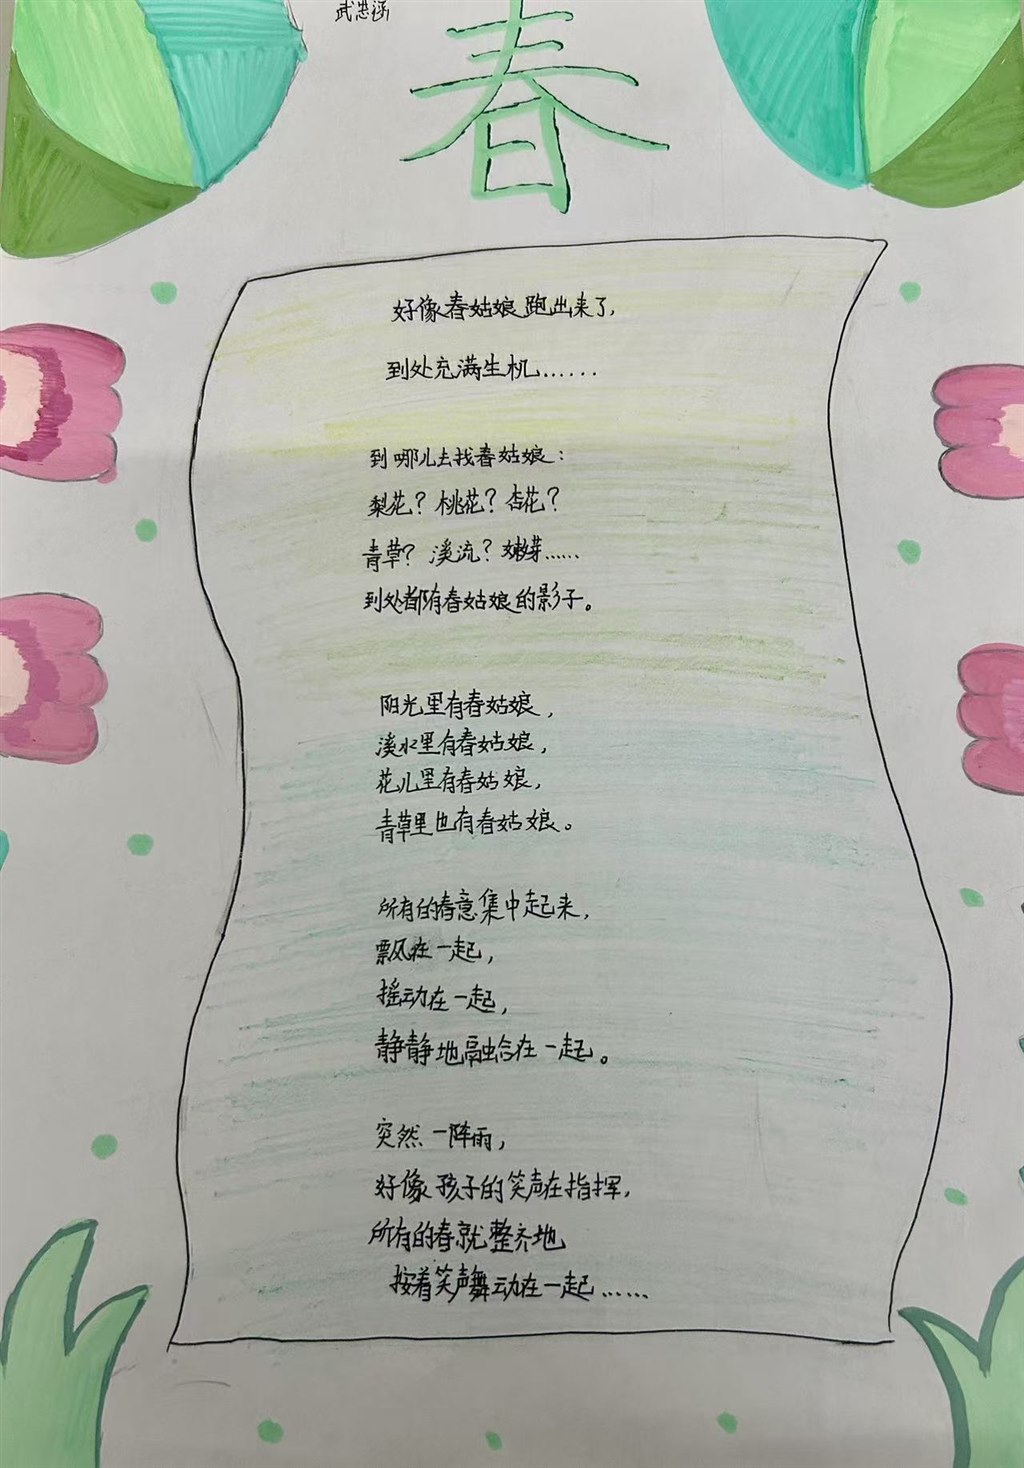 武思涵
春
好像春姑娘跑出来了，
到处充满生机……
到哪儿去找春姑娘：
梨花？桃花？杏花？
青草？溪流？嫩芽……
到处都有春姑娘的影子。
阳光里有春姑娘，
溪水里有春姑娘，
花儿里有春姑娘，
青草里也有春姑娘。
所有的春意集中起来，
飘在一起，
摇动在一起，
静静地融合在一起。
突然一阵雨，
好像孩子的笑声在指挥，
所有的春就整齐地
按着笑声舞动在一起……